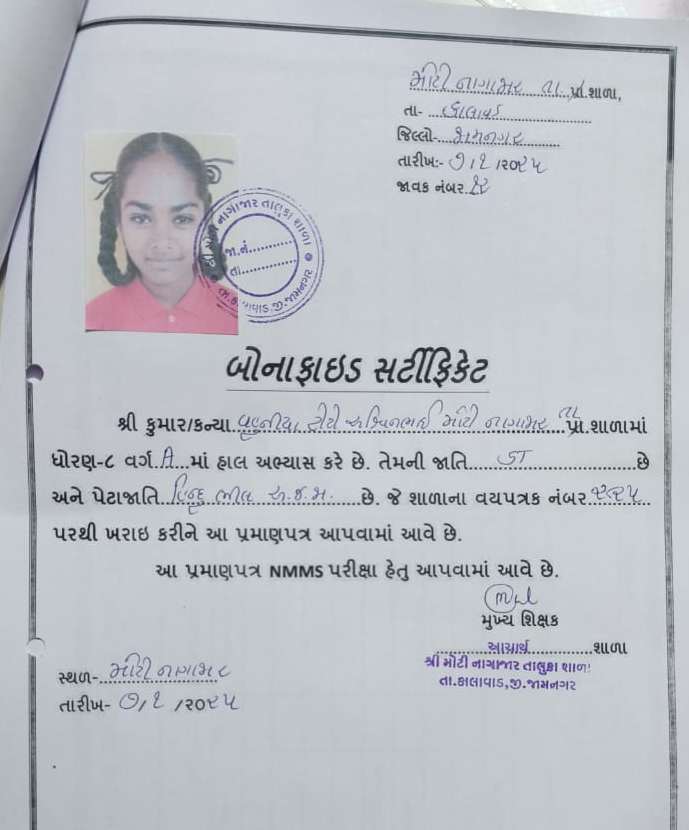 મોટી નાગાજર તા. પ્રા.શાળા,
તા- કાલાવડ
જિલ્લો- જામનગર
તારીખ:- ૭/૧/૨૦૨૫
જાવક નંબર.
શ્રી મોટી નાગાજર તાલુકા શાળા
જા.નં.
તા.
તા.કાલાવાડ.જી.જામનગર
બોનાફાઇડ સર્ટીફિકેટ
શ્રી કુમાર/કન્યા અશ્વિનભાઈ મોટી નાગાજર તા પ્રા.શાળામાં
ધોરણ-૮ વર્ગ માં હાલ અભ્યાસ કરે છે. તેમની જાતિ ST છે
અને પેટાજાતિ હિન્દુ ભીલ અ.જ.જા. છે. જે શાળાના વયપત્રક નંબર
પરથી ખરાઇ કરીને આ પ્રમાણપત્ર આપવામાં આવે છે.
આ પ્રમાણપત્ર NMMS પરીક્ષા હેતુ આપવામાં આવે છે.
મુખ્ય શિક્ષક
આચાર્ય શાળા
શ્રી મોટી નાગાજાર તાલુકા શાળા
તા.કાલાવાડ,જી.જામનગર
સ્થળ- મોટી નાગાજર
તારીખ- ૭/૧/૨૦૨૫